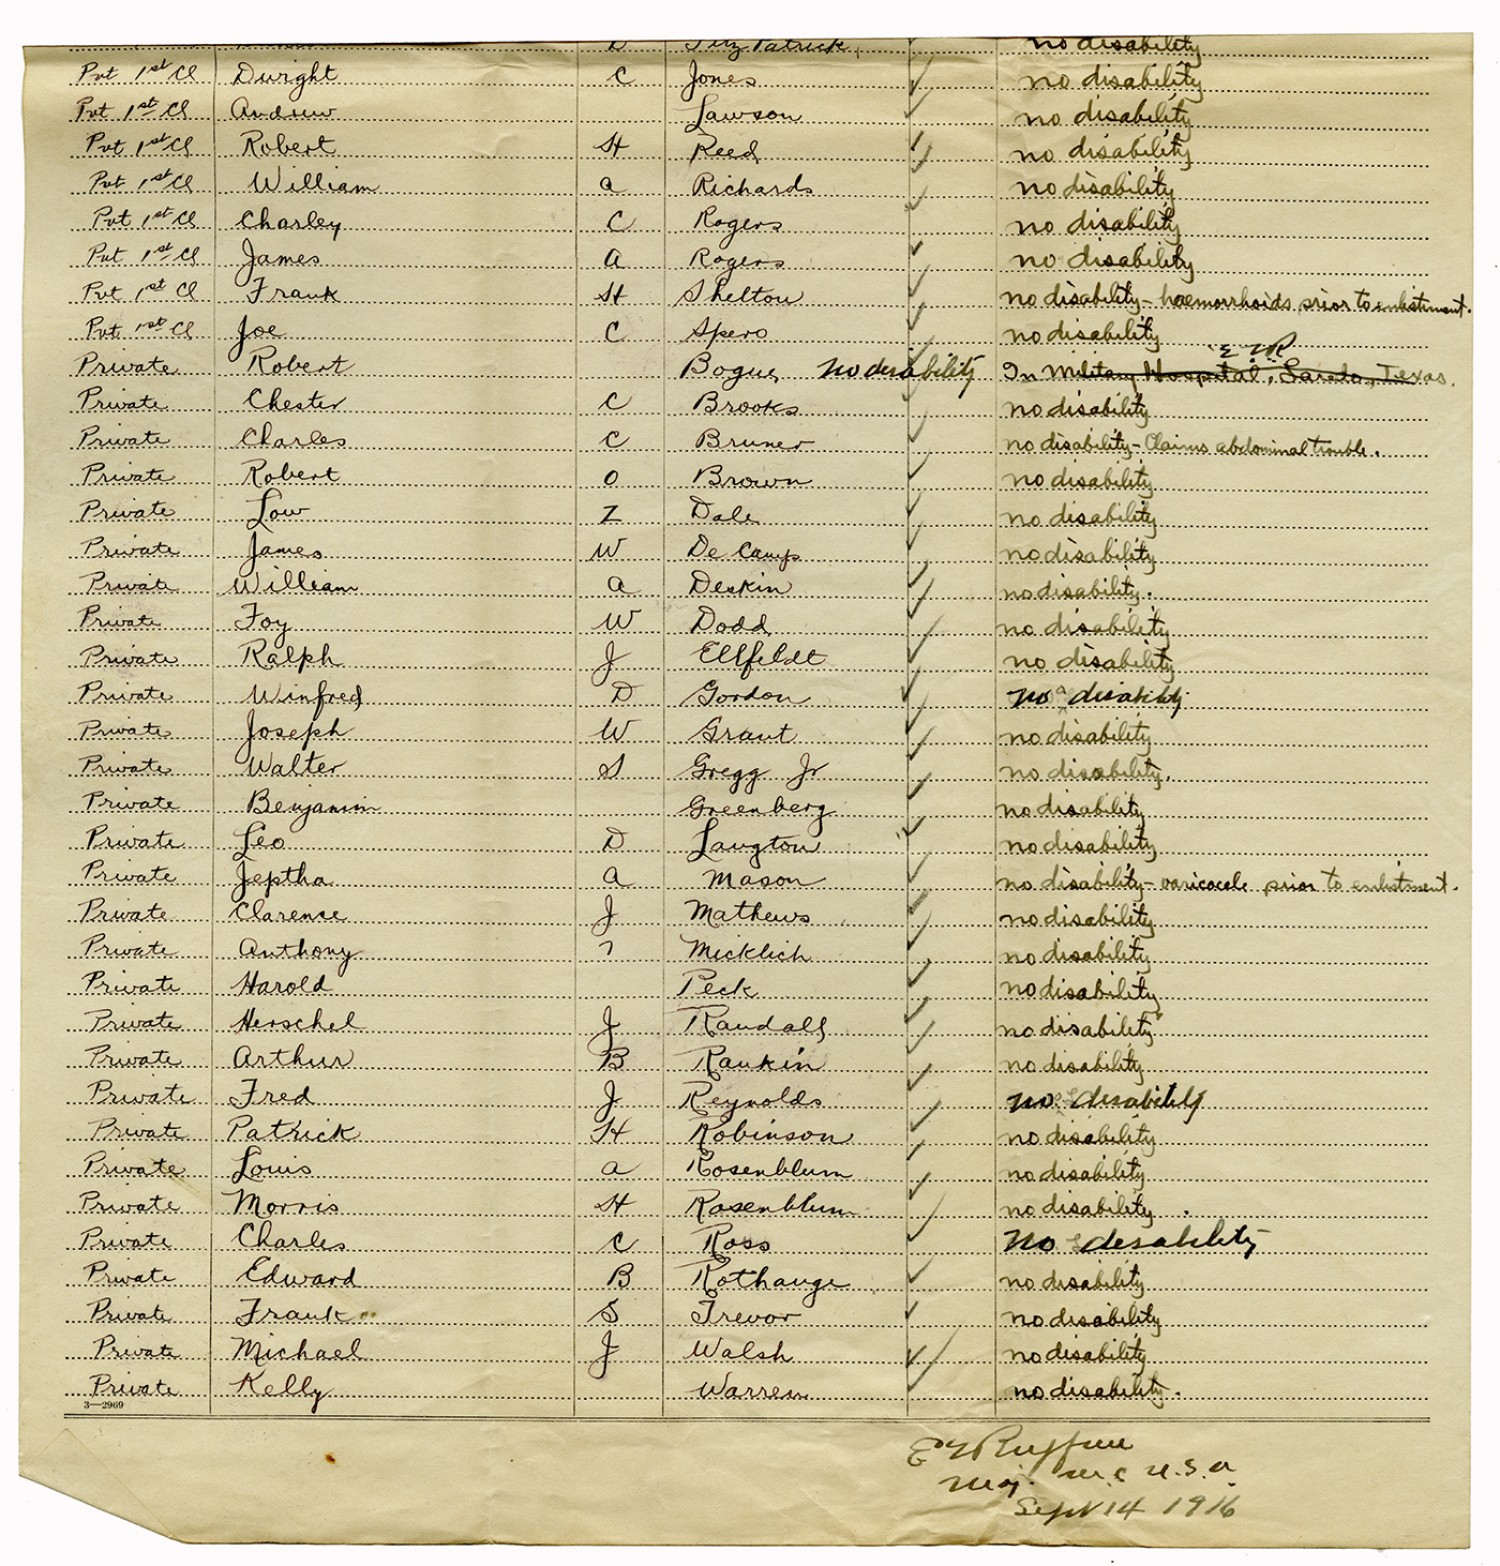 D Fitz Patrick, no disability
Pvt 1st Cl Dwight C Jones ✓ no disability
Pvt 1st Cl Andrew Lawson ✓ no disability
Pvt 1st Cl Robert H Reed ✓ no disability
Pvt 1st Cl William a Richards ✓ no disability
Pvt 1st Cl Charley C Rogers ✓ no disability
Pvt 1st Cl James a Rogers ✓ no disability
Pvt 1st Cl Frank H Shelton ✓ no disability - haemorrhoids prior to enlistment.
Pvt 1st Cl Joe C Spero ✓ no disability
E Y R
Private Robert Bogue no disability In Military Hospital, Laredo, Texas.
Private Chester C Brooks ✓ no disability
Private Charles C Bruner ✓ no disability - Claims abdominal trouble.
Private Robert O Brown ✓ no disability
Private Low Z Dale ✓ no disability
Private James W De Camp ✓ no disability
Private William a Deskin ✓ no disability.
Private Foy W Dodd ✓ no disability
Private Ralph J Ellfeldt ✓ no disability
Private Winfred D Gordon ✓ no disability
Private Joseph W Grant ✓ no disability
Private Walter S Gregg Jr ✓ no disability.
Private Benjamin Greenberg ✓ no disability
Private Leo D Langton ✓ no disability
Private Jeptha a Mason ✓ no disability - varicocele prior to enlistment.
Private Clarence J Mathews ✓ no disability
Private Anthony Micklich ✓ no disability
Private Harold Peck ✓ no disability
Private Herschel J Randall ✓ no disability
Private Arthur B Rankin ✓ no disability
Private Fred J Reynolds ✓ no disability
Private Patrick H Robinson ✓ no disability
Private Louis a Rosenblum ✓ no disability
Private Morris H Rosenblum ✓ no disability.
Private Charles C Ross ✓ No disability
Private Edward B Rothauge ✓ no disability
Private Frank S Trevor ✓ no disability
Private Michael J Walsh ✓ no disability
Private Kelly Warren ✓ no disability.
3—2969
E Y Ruffner
Maj. M.C U.S.A.
Sept 14 1916